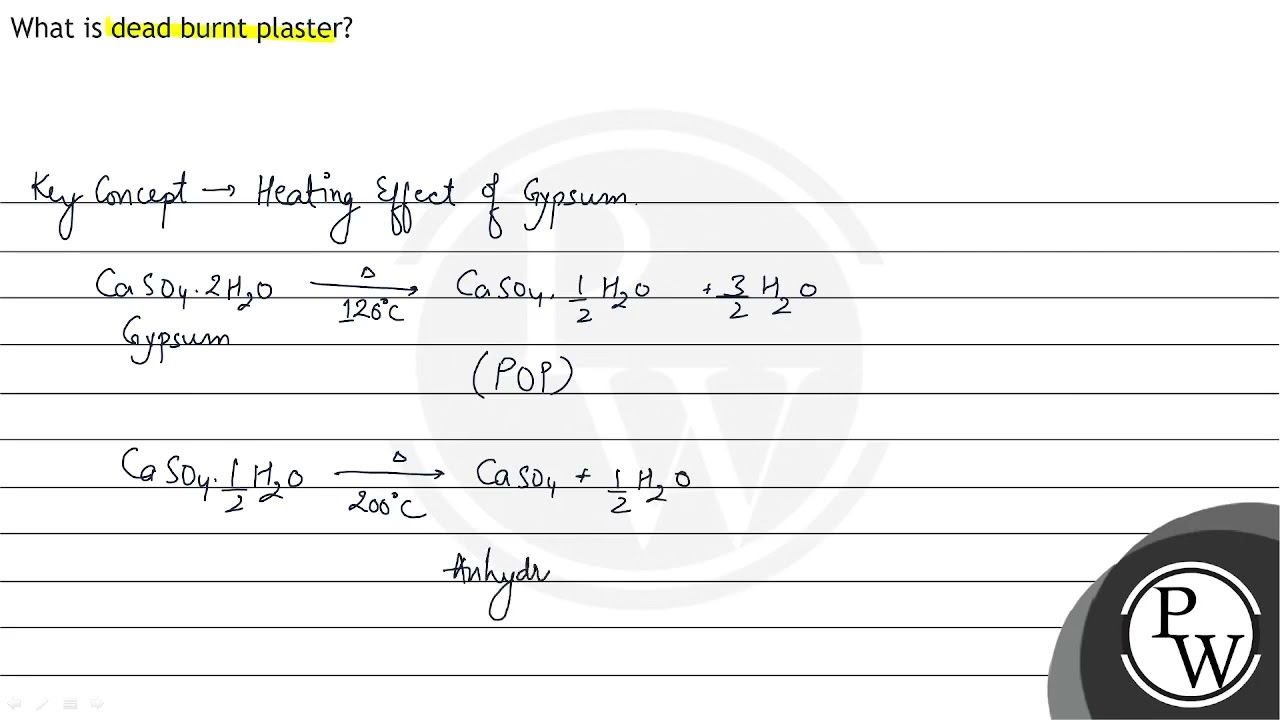 What is dead burnt plaster?
Key Concept → Heating Effect of Gypsum.
CaSO4.2H2O Δ→ 120°C CaSO4.1/2 H2O + 3/2 H2O
Gypsum
(POP)
CaSO4.1/2 H2O Δ→ 200°C CaSO4 + 1/2 H2O
Anhydr
P
W